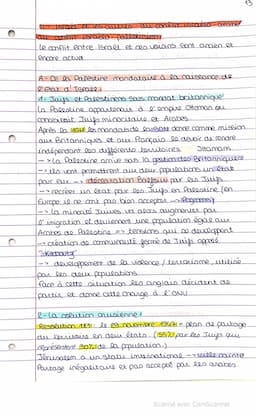 13
I - Israël et
Le conflit entre Israël et ses voisins est ancien et
encore actif
A- De la Palestine mandataire à la naissance de
l'État d'Israël
1- Juifs et Palestiniens sous mandat britannique
La Palestine appartenait à l'empire Ottoman ou
Juifs minoritaire et Arabes
Après la les mandats donne comme mission
aux Britanniques et aux Français le devoir de rendre
indépendant les différents territoires Ottomans
→ La Palestine arrive sous la gestion des Britanniques
→ Ils vont promettre aux deux populations un état
par eux → déclaration Balfour par les Juifs
→ recréer un état par les Juifs en Palestine (en
Europe ils ne sont pas bien acceptés → Pogroms)
→ la minorité Juives va alors augmenter par
l'immigration et deviennent une population égale aux
Arabes de Palestine => tensions qui se développent
→ création de communauté fermé de Juifs appelé
→ développement de la violence / terrorisme, utilisé
par les deux populations
Face à cette situation les anglais décident de
partir et donne cette charge à l'ONU
2- La solution onusienne
Résolution 181 : le 29 novembre 1947 = plan de partage
du territoire en deux états. (55% par les Juifs qui
représentent 30% de la population)
Jérusalem a un statut international →
Partage inégalitaire et pas accepté par les arabes
Scanné avec CamScanner